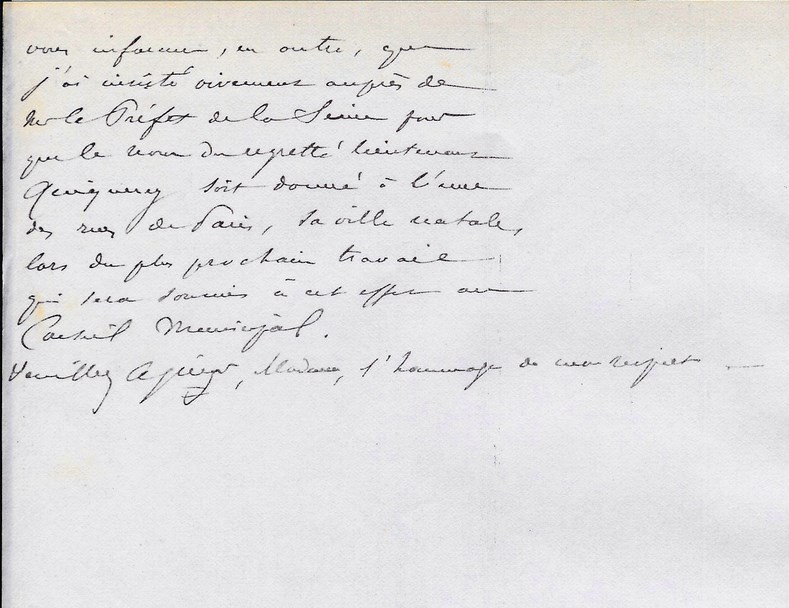 vous informer, en outre, que
j'ai insisté vivement auprès de
Mr le Préfet de la Seine pour
que le nom du regretté lieutenant
Quiquerez soit donné à l'une
des rues de Paris, sa ville natale,
lors du plus prochain travail
qui sera soumis à cet effet au
Conseil Municipal.
Veuillez agréer, Madame, l'hommage de mon respect